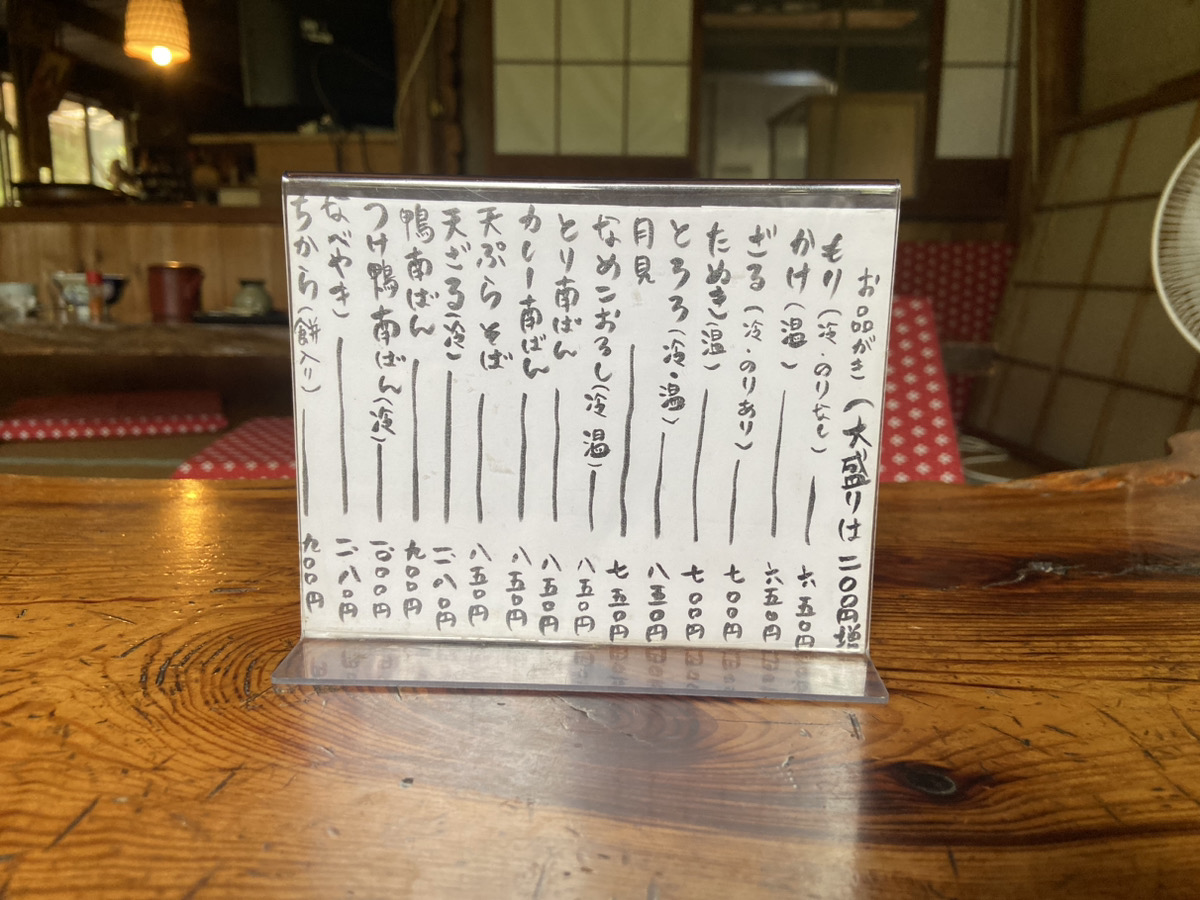 お品がき（大盛りは二〇〇円増
もり（冷・のりなし）――六五〇円
かけ（温）――六五〇円
ざる（冷・のりあり）――七〇〇円
たぬき（温）――七〇〇円
とろろ（冷・温）――八五〇円
月見――七五〇円
なめこおろし（冷 温）――八五〇円
とり南ばん――八五〇円
カレー南ばん――八五〇円
天ぷらそば――八五〇円
天ざる（冷）――一一八〇円
鴨南ばん――九〇〇円
つけ鴨南ばん（冷）――一〇〇〇円
なべやき――一一八〇円
ちから（餅入り）――九〇〇円